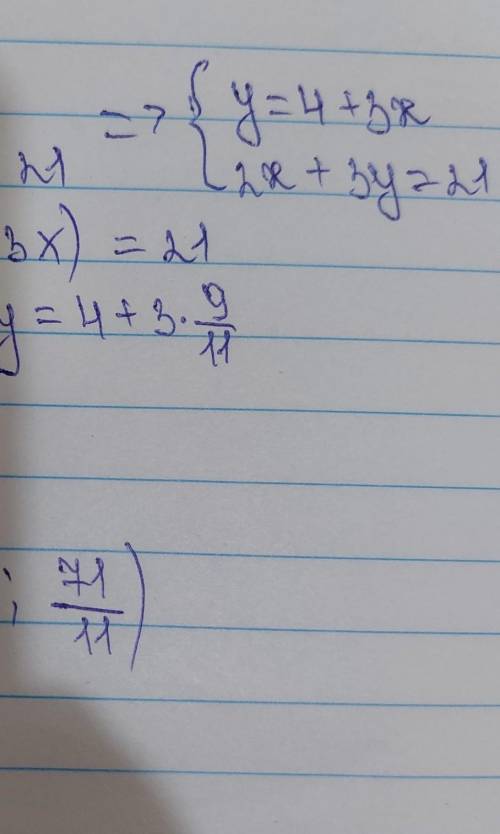 => { y = 4 + 3x
21 2x + 3y = 21
3x) = 21
y = 4 + 3 · 9/11
; 71/11)